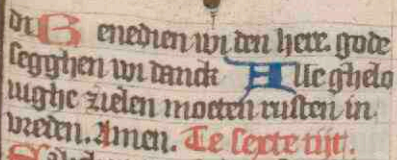 di Benedien wi den here. gode
segghen wi danck Alle ghelo
uighe zielen moeten rusten in
vreden. Amen. Te sexte tijt.